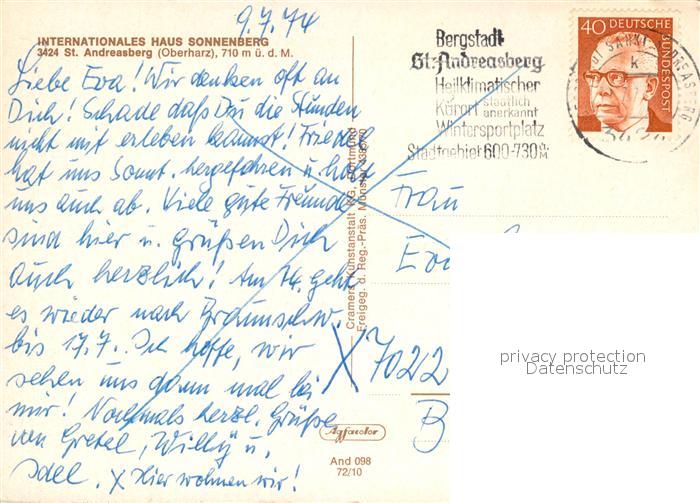 9.7.74
INTERNATIONALES HAUS SONNENBERG
3424 St. Andreasberg (Oberharz), 710 m ü. d. M.
Liebe Eva! Wir denken oft an
Dich! Schade daß Du die Stunden
nicht mit erleben kannst! Frieder
hat uns Sonnt. hergefahren u. holt
uns auch ab. Viele gute Freunde
sind hier u. grüßen Dich
auch herzlich! Am 14. geht
es wieder nach Braunschw.
bis 17.7. Ich hoffe, wir
sehen uns dann mal bei
mir! Nochmals herzl. Grüße
von Gretel, Willy u.
X Hier wohnen wir!
Cramers Kunstanstalt KG, Dortmund
Freigeg. d. Reg.-Präs. Münster
Agfacolor
And 098
72/10
Bergstadt
St. Andreasberg
Heilklimatischer
Kurort staatlich
anerkannt
Wintersportplatz
Stadtgebiet 600-730 ü. M
40 DEUTSCHE
BUNDESPOST
SANKT ANDREASBERG
3424
Frau
X 7022
B
privacy protection
Datenschutz